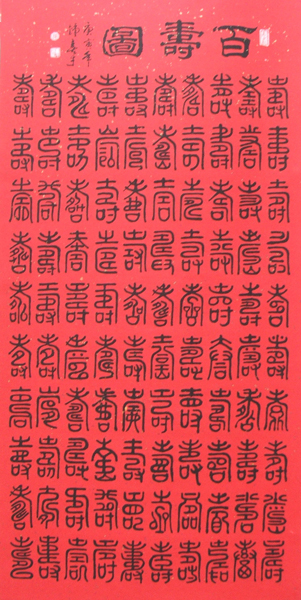 百壽圖
壽壽壽壽壽壽壽壽壽壽
壽壽壽壽壽壽壽壽壽壽
壽壽壽壽壽壽壽壽壽壽
壽壽壽壽壽壽壽壽壽壽
壽壽壽壽壽壽壽壽壽壽
壽壽壽壽壽壽壽壽壽壽
壽壽壽壽壽壽壽壽壽壽
壽壽壽壽壽壽壽壽壽壽
壽壽壽壽壽壽壽壽壽壽
壽壽壽壽壽壽壽壽壽壽
庚寅年